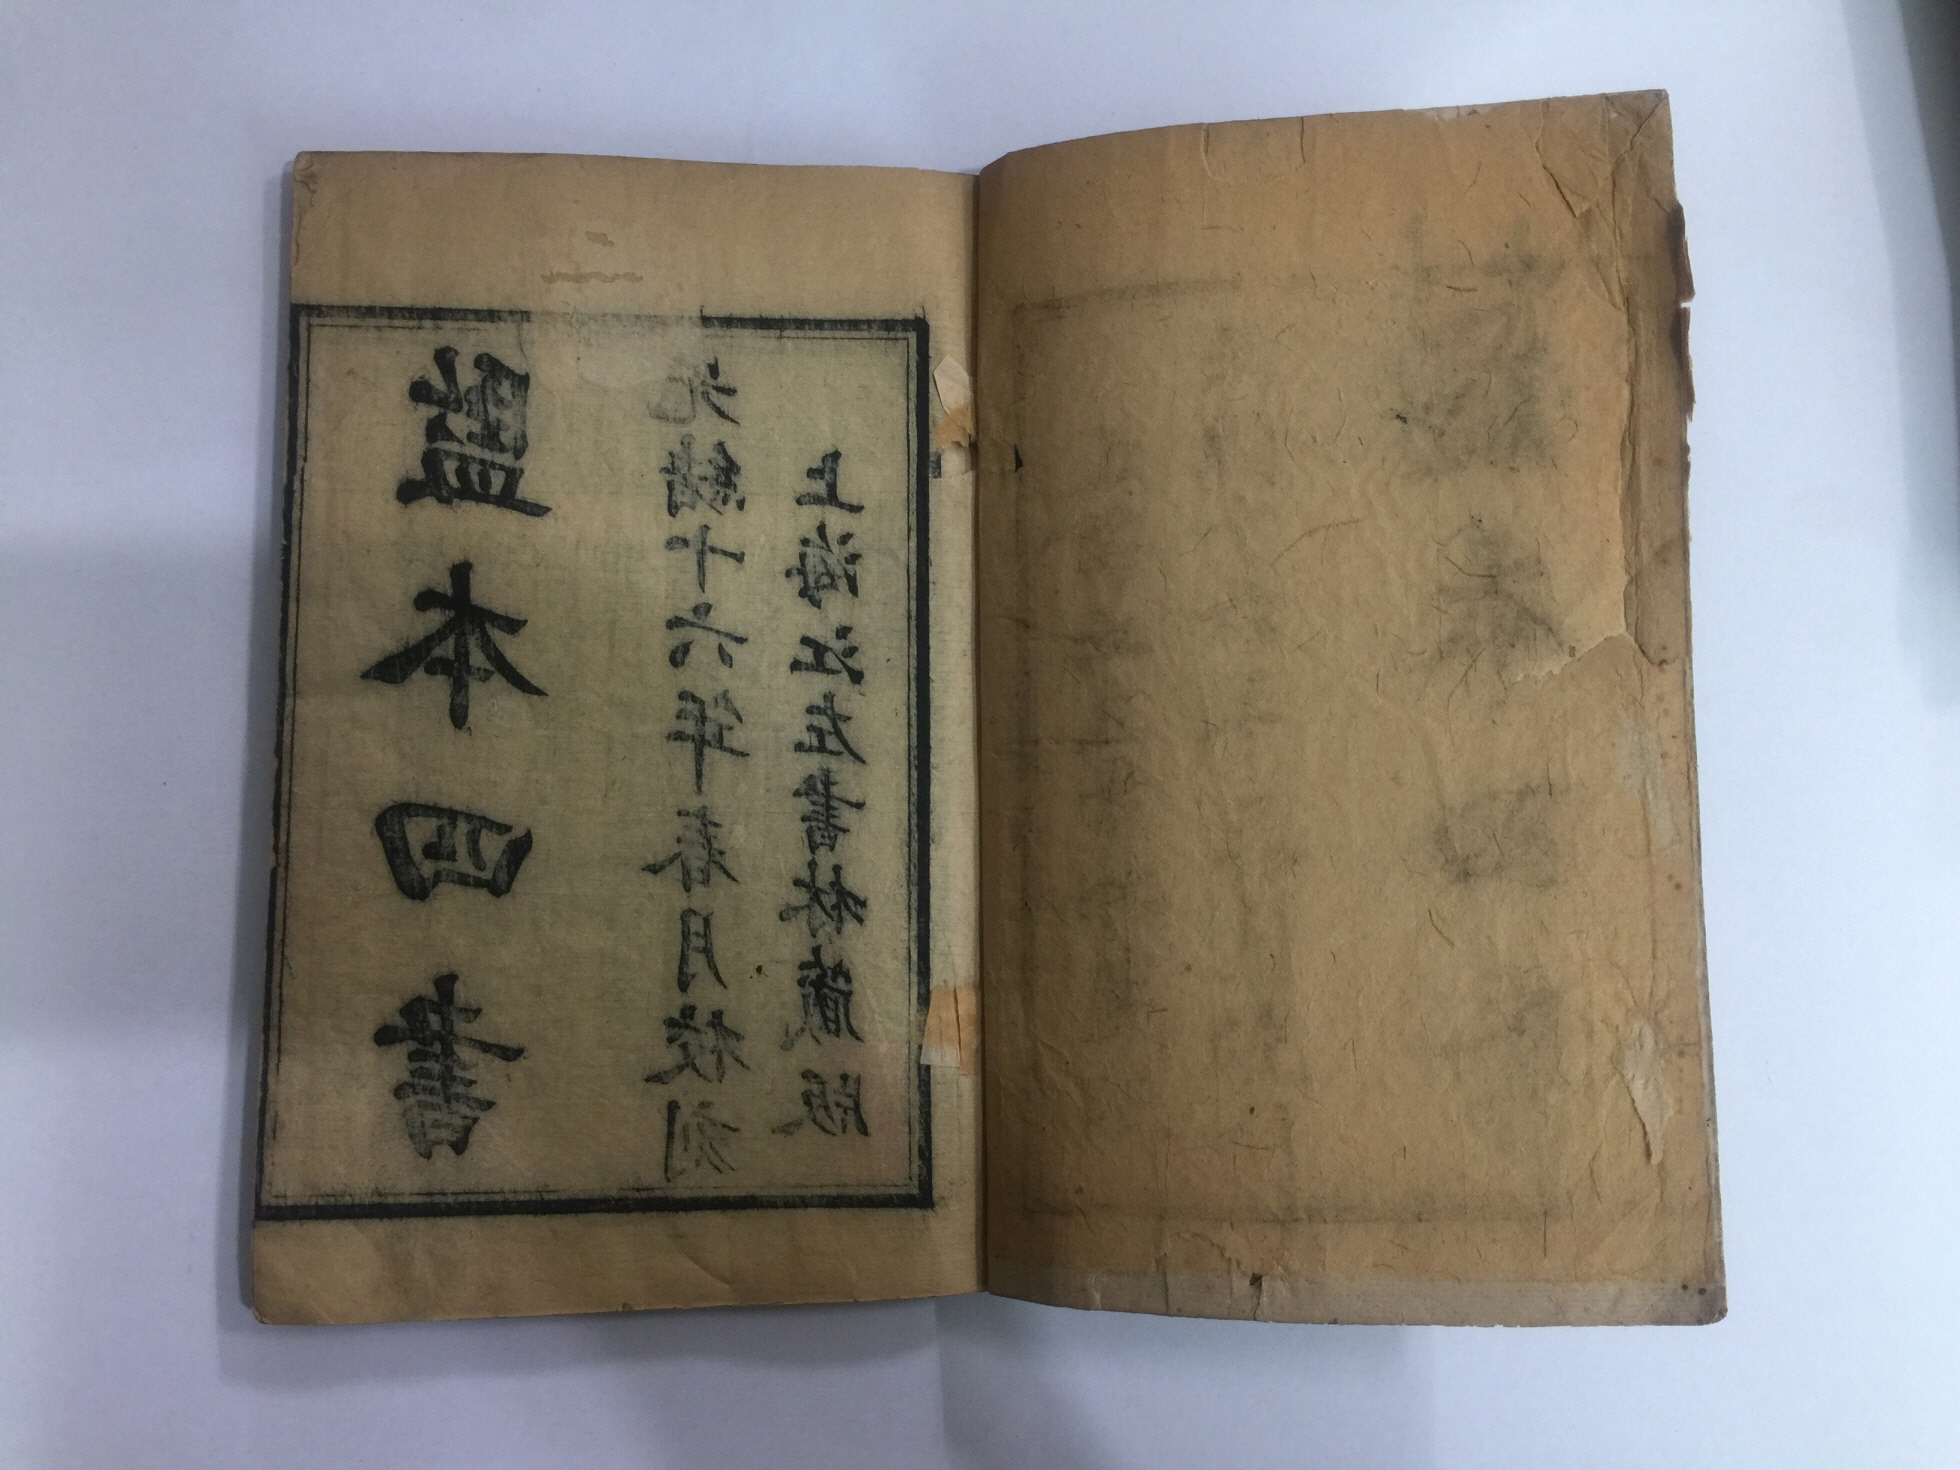 監本四書
光緒十六年春月校刻
上海江左書林藏版